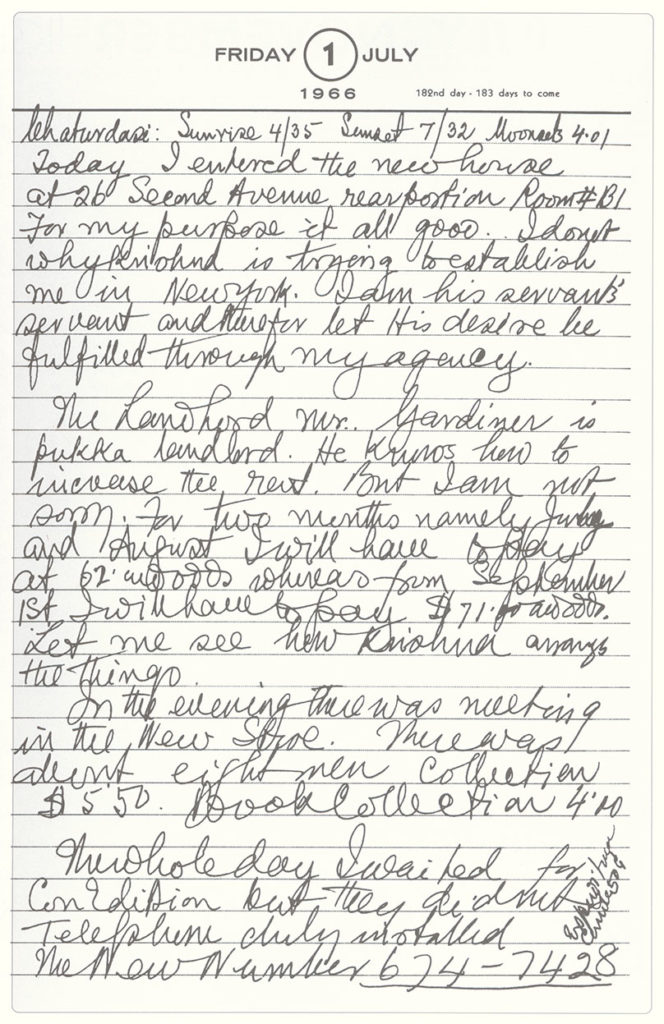 FRIDAY 1 JULY
1966
182nd day - 183 days to come
Chaturdasi: Sunrise 4/35 Sunset 7/32 Moonsets 4.01
Today I entered the new house
at 26 Second Avenue rear portion Room # B1
For my purpose it all good. I do not
why Krishna is trying to establish
me in New York. I am his servant's
servant and therefor let His desire be
fulfilled through my agency.
The Land Lord Mr. Gardiner is
pukka landlord. He Knows how to
increase the rent. But I am not
sorry. For two months namely July
and August I will have to pay
at 62. whereas from September
1st I will have to pay $ 71.
Let me see how Krishna arrange
the things.
In the evening there was meeting
in the New Store. There was
about eight men Collection
$ 5.50. Book Collection 4.00
The whole day I waited for
Con Edition but they did not
Telephone duly installed
The New Number 674-7428